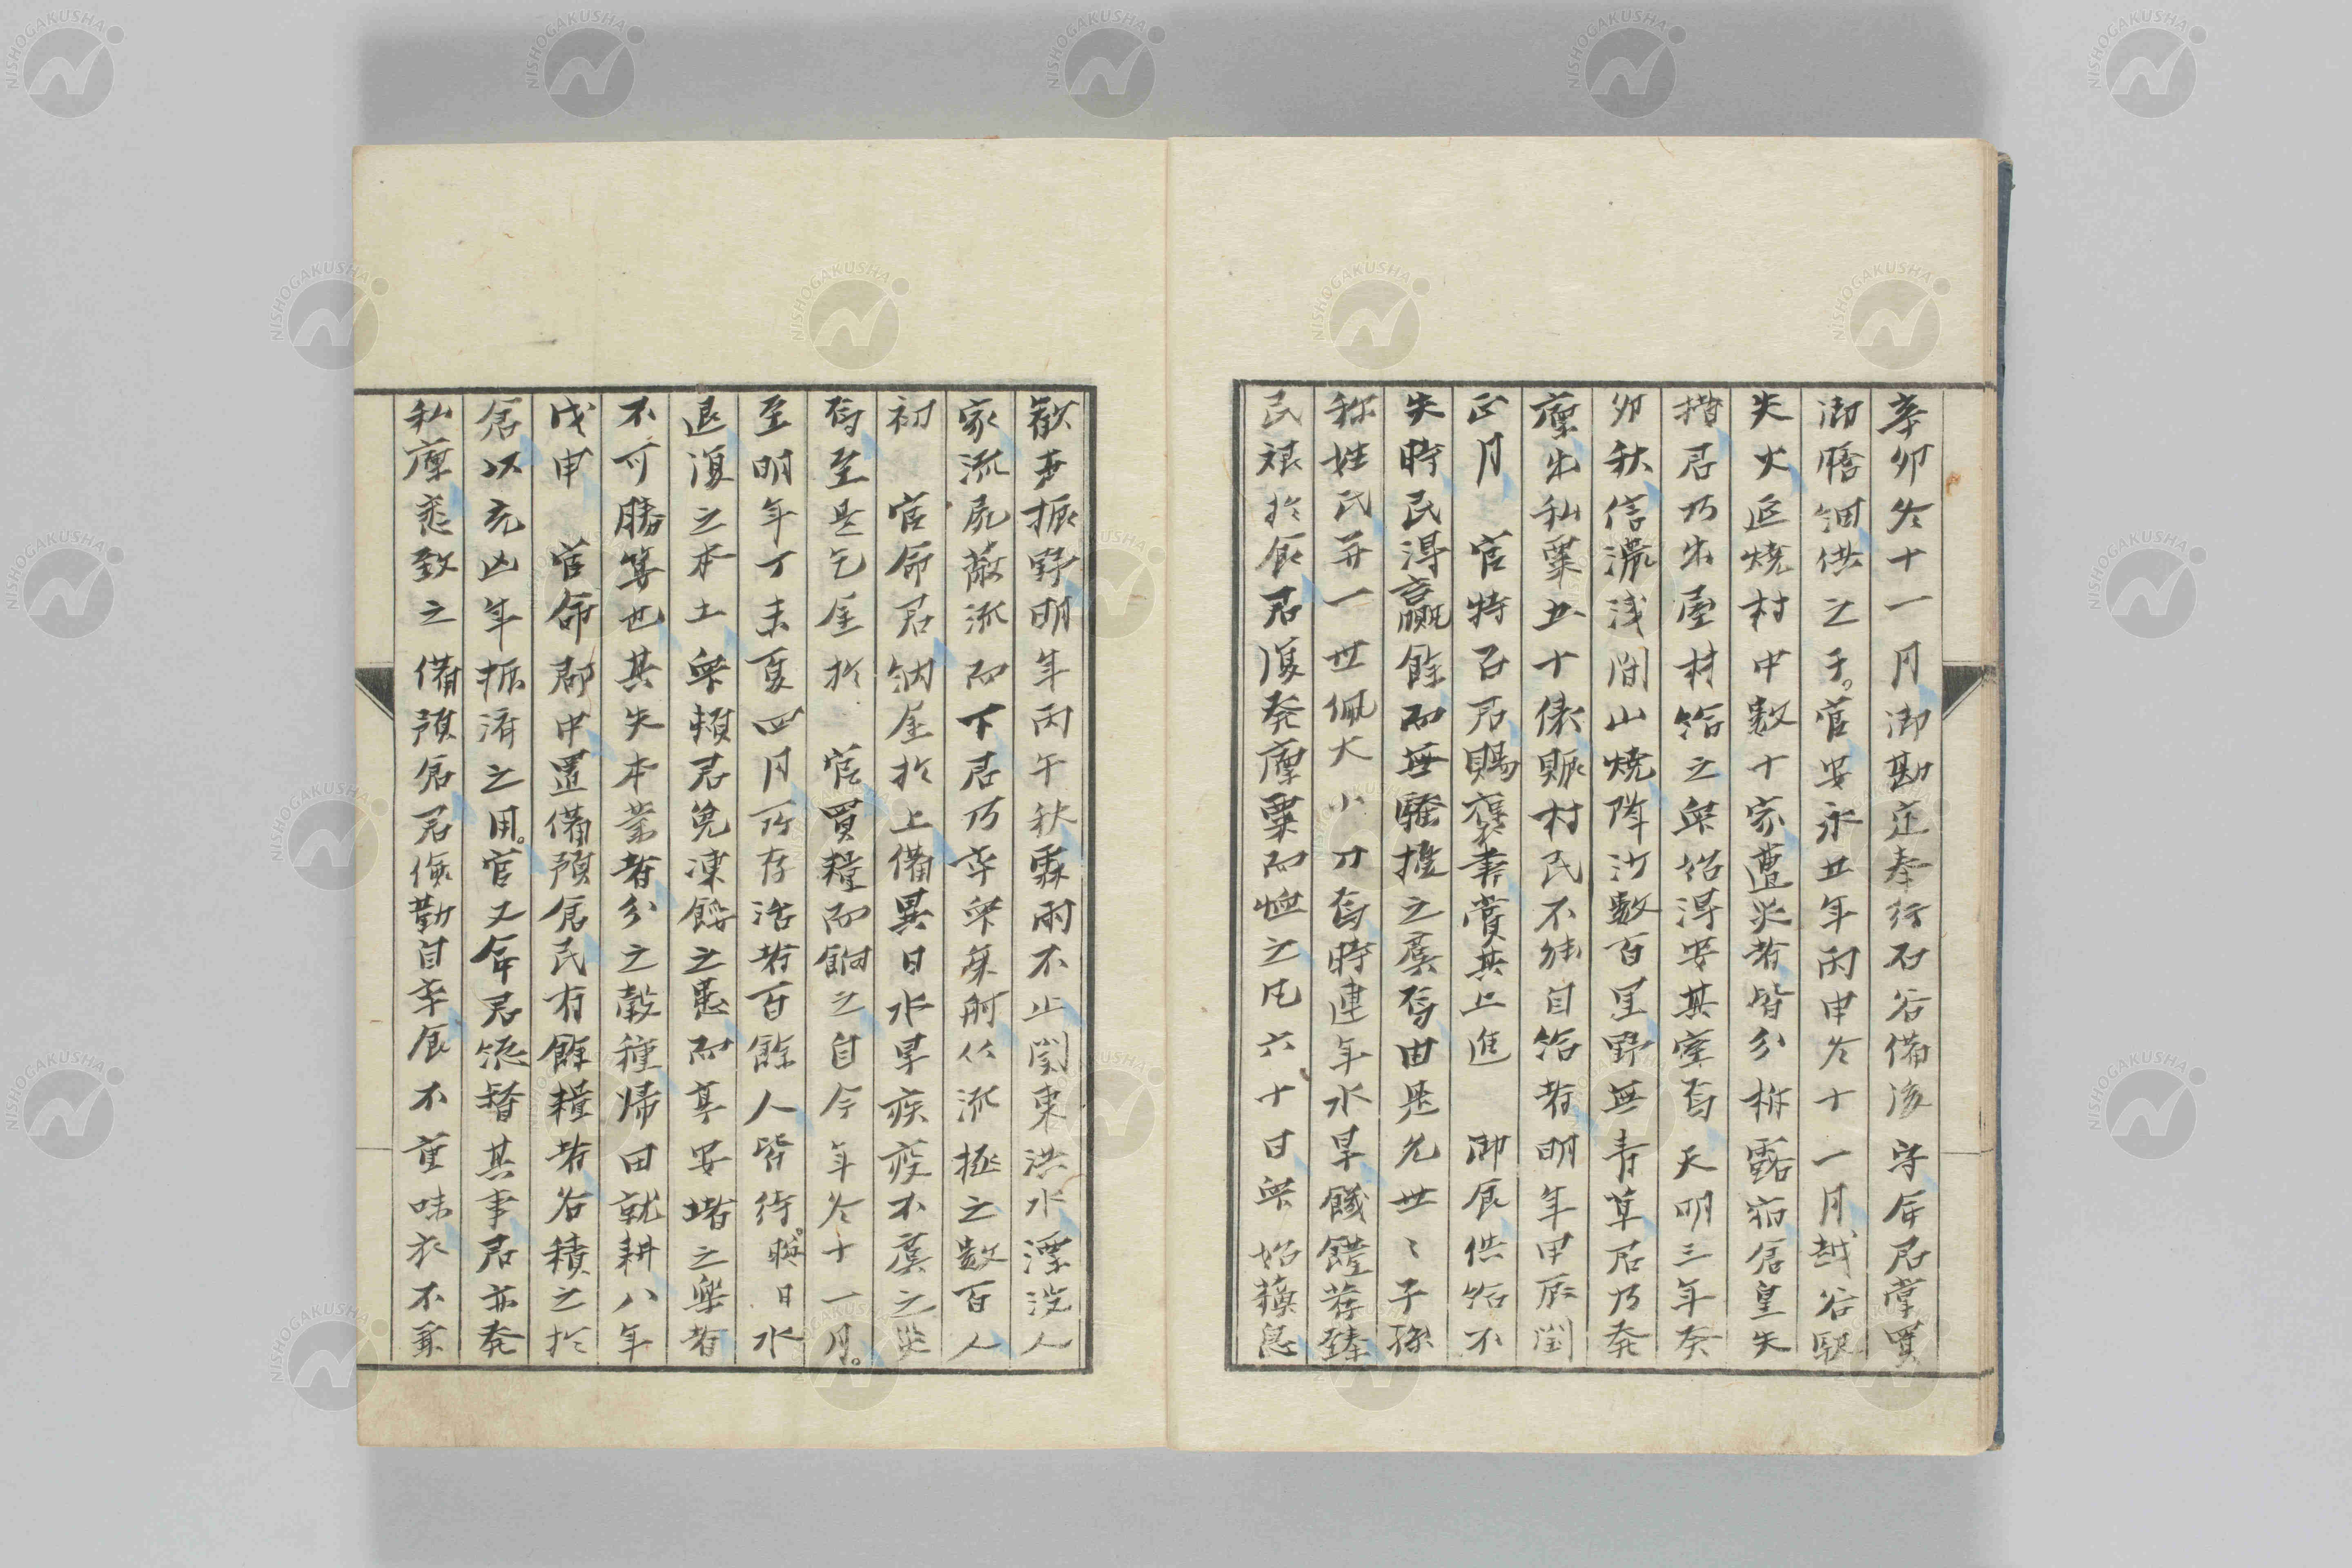 辛卯冬十一月御勘定奉行石谷備後守辱君掌買
御膳細供之于。官安永五年丙申冬十一月越谷駅
失火延焼村中数十家遭災者皆分析露宿倉皇失
措君乃出屋材給之衆始得安其室焉天明三年癸
卯秋信濃浅間山焼降沙数百里野無青草君乃発
廩出私粟五十俵賑村民不能自給者明年甲辰閏
正月　官特召君賜褒書賞其上進　御食供給不
失時民得贏餘而無騒擾之虞焉由是允世〻子孫
称姓氏并一世佩大小刀焉時連年水旱饑饉荐臻
民艱於食君復発廩粟而恤之凡六十日衆始蘇息
歓声振野明年丙午秋霖雨不止関東洪水漂没人
家流屍蔽流而下君乃率衆乗舸以流拯之数百人
初　官命君納金於上備異日水旱疾疫不虞之災
焉至是乞金於　官買糧而餉之自今年冬十一月。
至明年丁未夏四月所存活者百餘人皆待。暖日水
退復之本土衆頼君免凍餒之患而享安堵之楽者
不可勝算也其失本業者分之穀種帰田就耕八年
戊申　官命郡中置備預倉民有餘糧者各積之於
倉以充凶年振済之用。官又命君総督其事君亦発
私廩悉致之備預倉君倹勤自率食不重味衣不兼